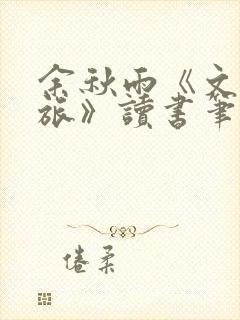 余秋雨《文
旅》讀書筆
倦柔